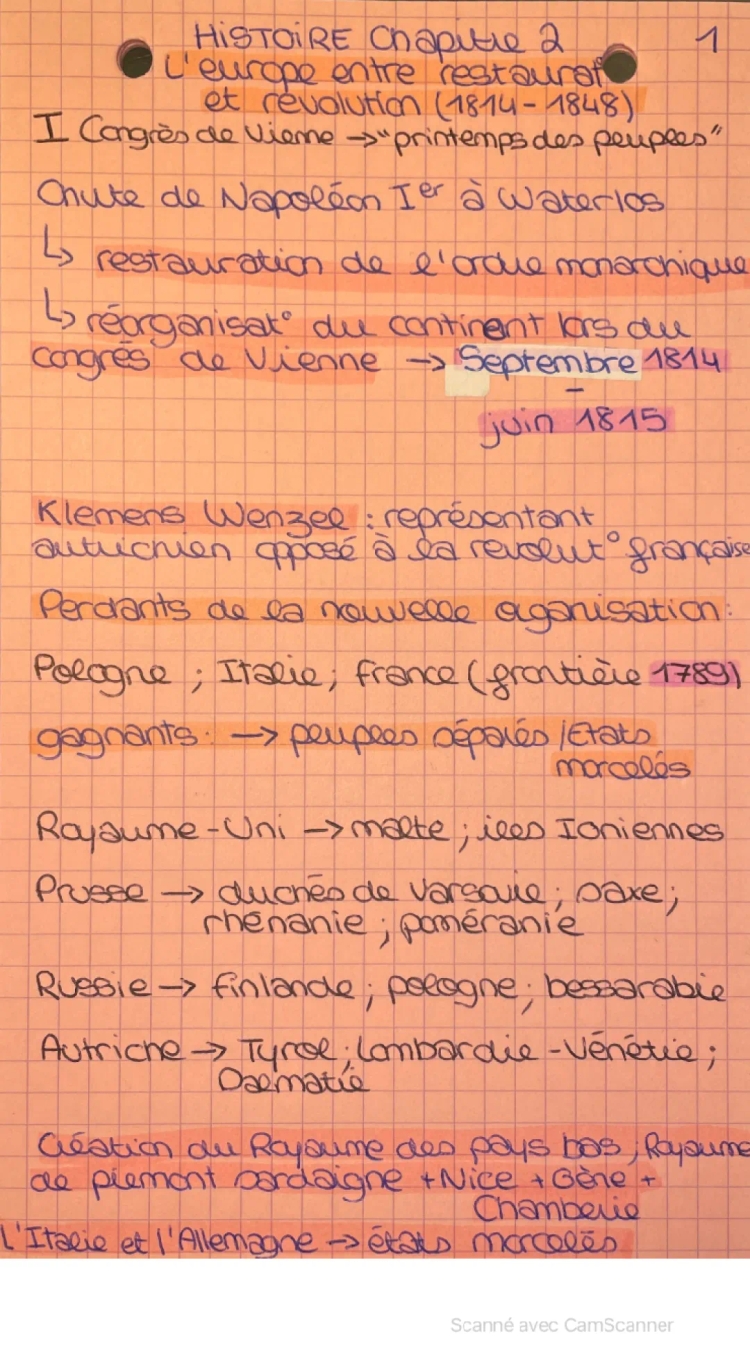 HISTOIRE Chapitre 2 1
L'europe entre restaurat°
et revolution (1814-1848)
I Congrès de Vienne → "printemps des peuples"
Chute de Napoléon Ier à Waterloo
↳ restauration de l'ordre monarchique
↳ réorganisat° du continent lors du
congrès de Vienne → Septembre 1814
-
juin 1815
Klemens Wenzel : représentant
autrichien opposé à la revolut° française
Perdants de la nouvelle organisation :
Pologne ; Italie ; france (frontière 1789)
gagnants : → peuples séparés / Etats
morcelés
Royaume-Uni → malte ; iles Ioniennes
Prusse → duchés de varsovie ; saxe ;
rhénanie ; poméranie
Russie → finlande ; pologne ; bessarabie
Autriche → Tyrol ; Lombardie-Vénétie ;
Dalmatie
Création du Royaume des pays bas ; Royaume
de piemont sardaigne + Nice + Gène +
Chamberie
L'Italie et l'Allemagne → états morcelés
Scanné avec CamScanner